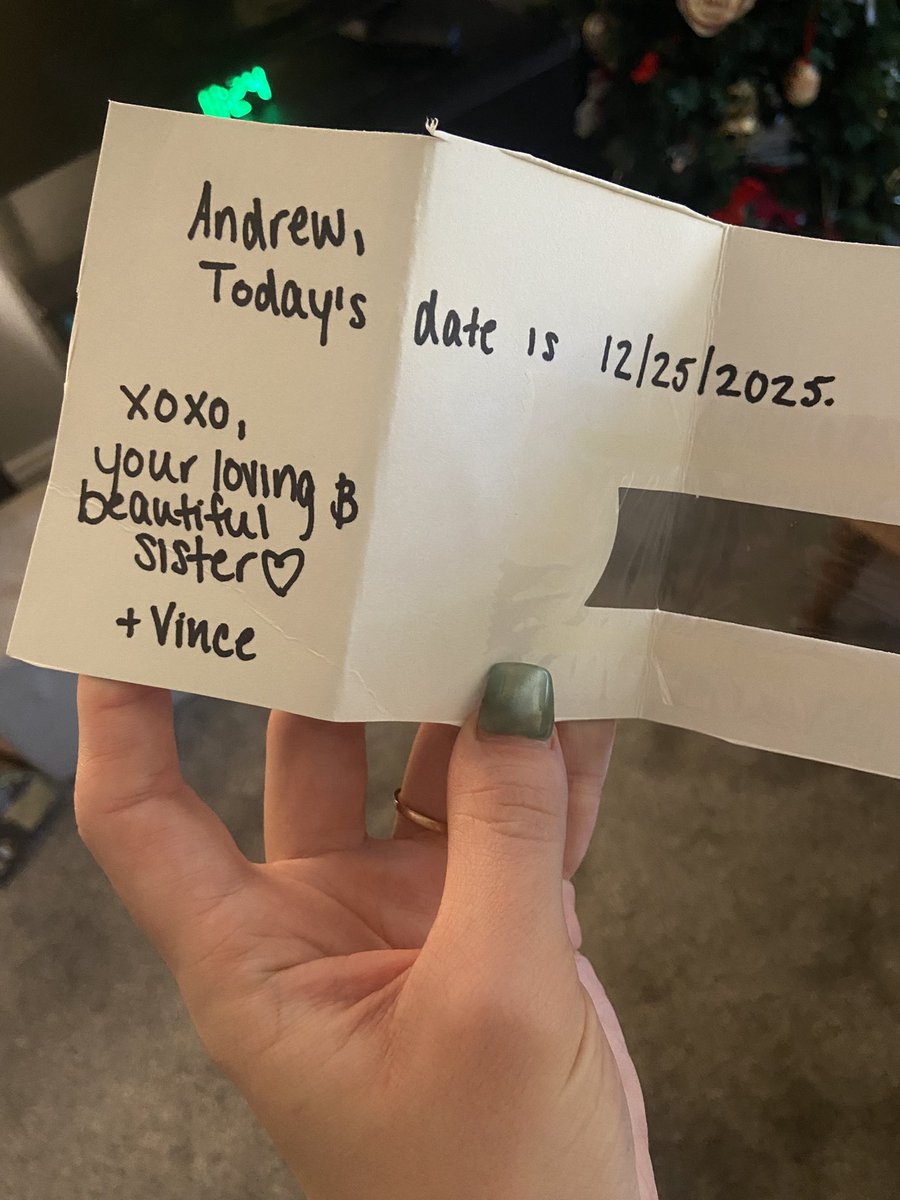 Andrew,
Today's date is 12/25/2025.
xoxo,
your loving &
beautiful
sister♡
+ Vince